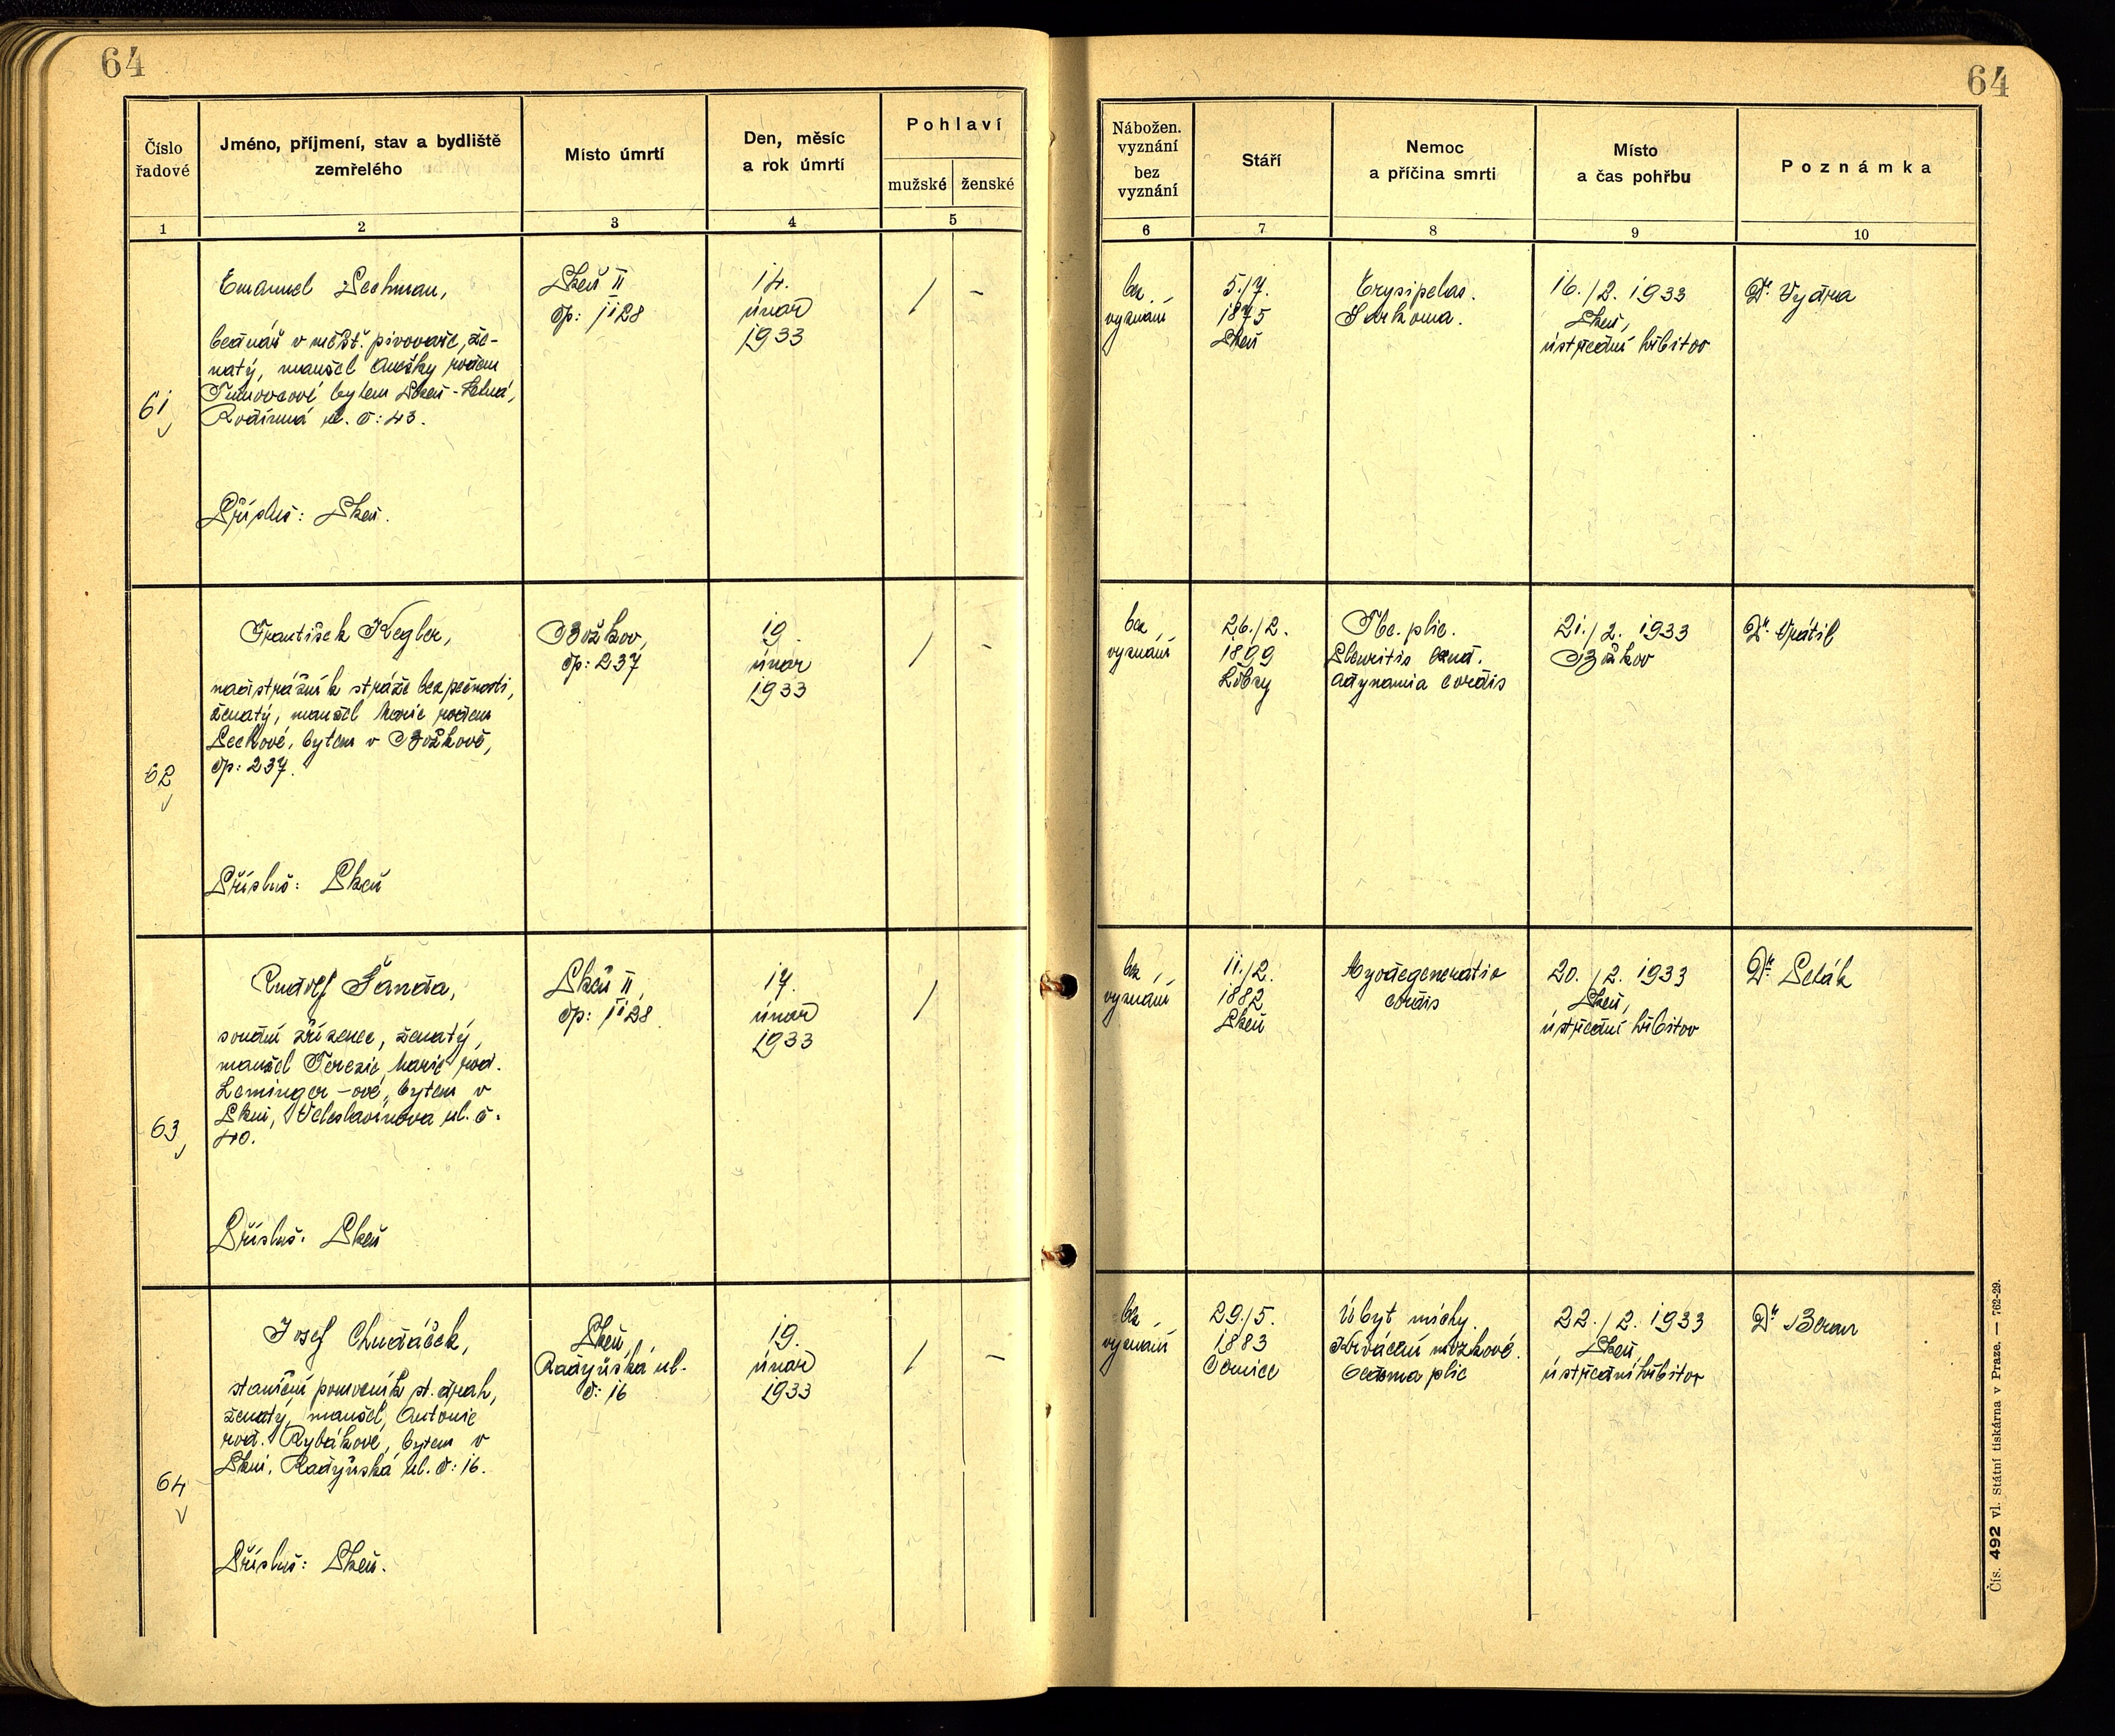 64
64
Číslo
řadové
Jméno, příjmení, stav a bydliště
zemřelého
Místo úmrtí
Den, měsíc
a rok úmrtí
Pohlaví
mužské
ženské
Nábožen.
vyznání
bez
vyznání
Stáří
Nemoc
a příčina smrti
Místo
a čas pohřbu
Poznámka
1
2
3
4
5
6
7
8
9
10
61
Emanuel Lechman,
bednář v měšť. pivovaře, že-
natý, manžel Anežky rodem
bytem Plzeň-Letná,
Rodinná ul. č: 43.
Přísluš: Plzeň.
Plzeň II
čp: 1128
14.
únor
1933
/
–
bez
vyznání
5./7.
1875
Plzeň
Erysipelas.
Sarkoma.
16./2. 1933
Plzeň,
ústřední hřbitov
Dr. Vydra
62
František Kegler,
nadstrážník stráže bezpečnosti,
ženatý, manžel Marie rodem
bytem v Božkově,
čp: 237.
Přísluš: Plzeň
Božkov,
čp: 237
19.
únor
1933
/
–
bez
vyznání
26./2.
1899
Tbc. plic.
Pleuritis
Adynamia cordis
21./2. 1933
Božkov
Dr. Vrátil
63
Rudolf Šanda,
soudní zřízenec, ženatý,
manžel Terezie Marie rod.
Leminger-ové, bytem v
Plzni, Veleslavínova ul. č.
40.
Přísluš: Plzeň
Plzeň II,
čp: 1128
17.
únor
1933
/
bez
vyznání
11./2.
1882
Plzeň
Myodegeneratio
cordis
20./2. 1933
Plzeň,
ústřední hřbitov
Dr. Leták
64
Josef Chudáček,
staniční pomocník st. drah,
ženatý, manžel Antonie
rod. Rybákové, bytem v
Plzni, Radyňská ul. č: 16.
Přísluš: Plzeň.
Plzeň,
Radyňská ul.
č: 16
19.
únor
1933
/
–
bez
vyznání
29./5.
1883
Černice
Úbyt míchy.
Krvácení mozkové.
Oedema plic
22./2. 1933
Plzeň,
ústřední hřbitov
Dr. Beran
Čís. 492 vl. Státní tiskárna v Praze. — 762-29.